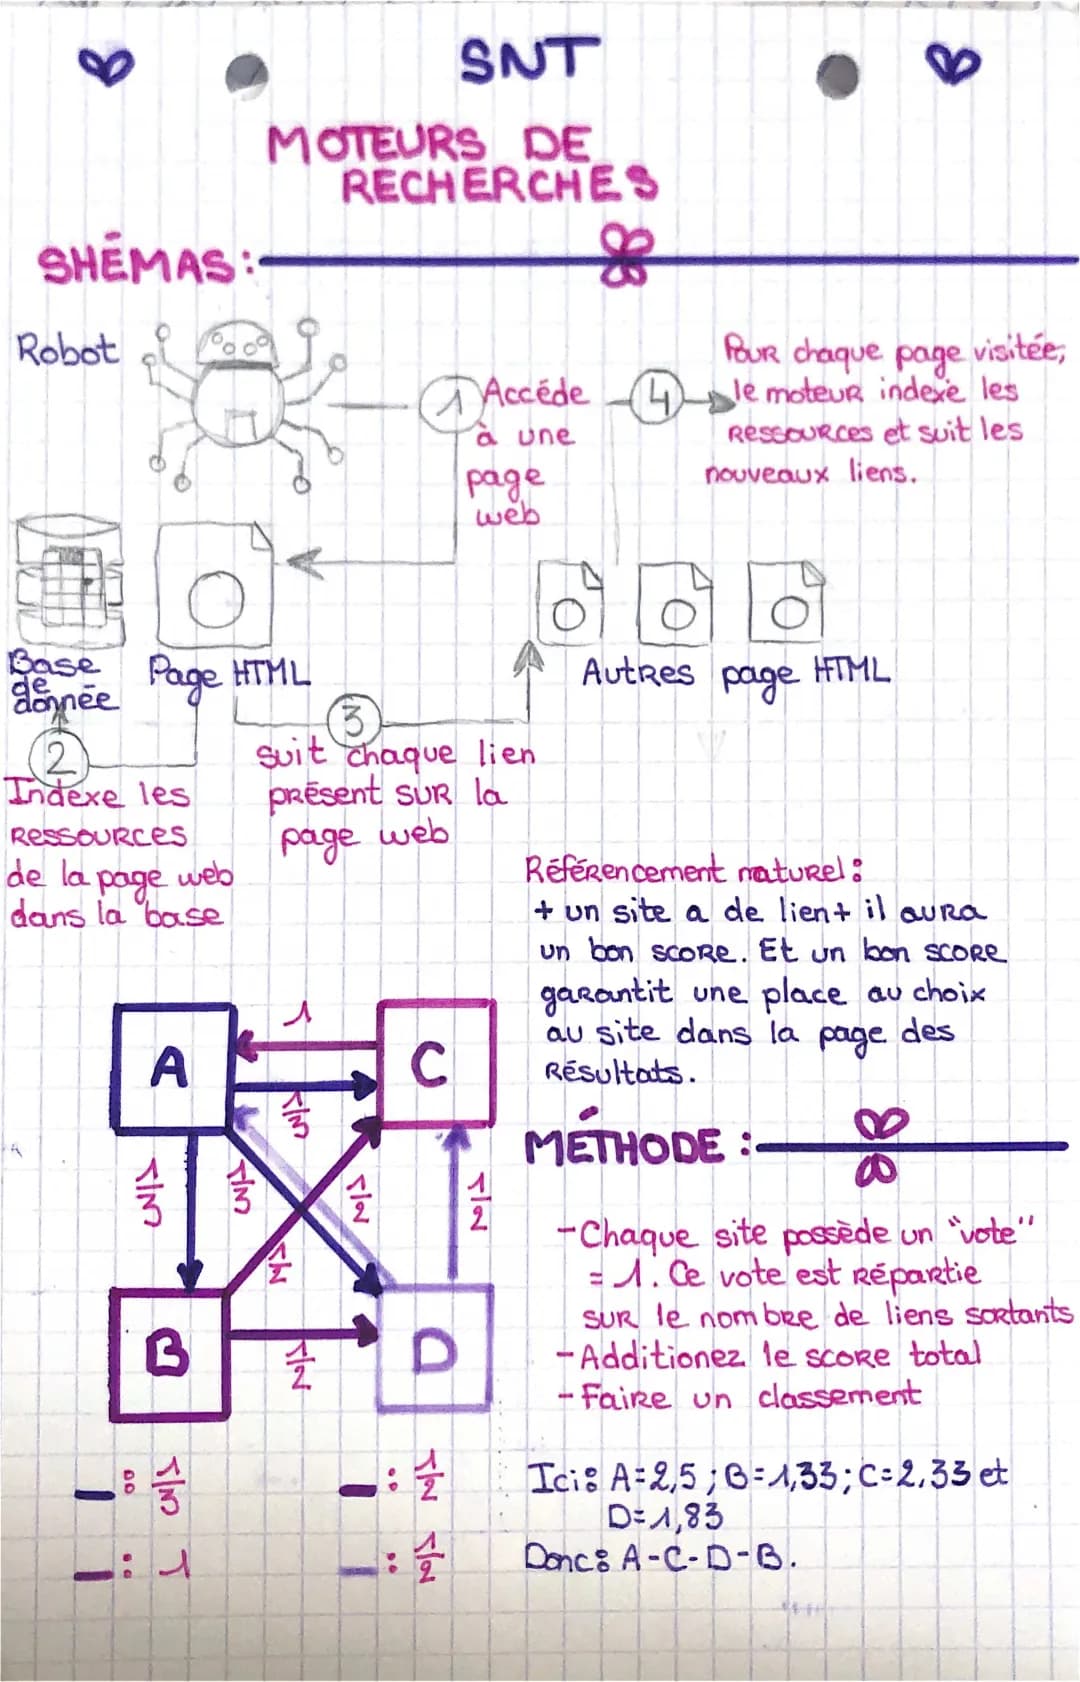 SNT
MOTEURS DE
RECHERCHES
SHÉMAS:
Robot
1
Accéde
à une
page
web
4
Pour chaque page visitée,
le moteur indexe les
Ressources et suit les
nouveaux liens.
Base
de
donnée
Page HTML
Autres page HTML
2
Indexe les
Ressources
de la page web
dans la base
3
suit chaque lien
présent sur la
page web
Référencement naturel:
+ un site a de lien+ il aura
un bon score. Et un bon score
garantit une place au choix
au site dans la page des
Résultats.
A
C
B
D
1
1/3
1/3
1/3
1/2
1/2
1/2
1/2
MÉTHODE :
- Chaque site possède un "vote"
= 1. Ce vote est répartie
sur le nombre de liens sortants
- Additionez le score total
- Faire un classement
: 1/3
: 1/2
: 1
: 1/2
Ici: A=2,5; B=1,33; C=2,33 et
D=1,83
Donc: A-C-D-B.